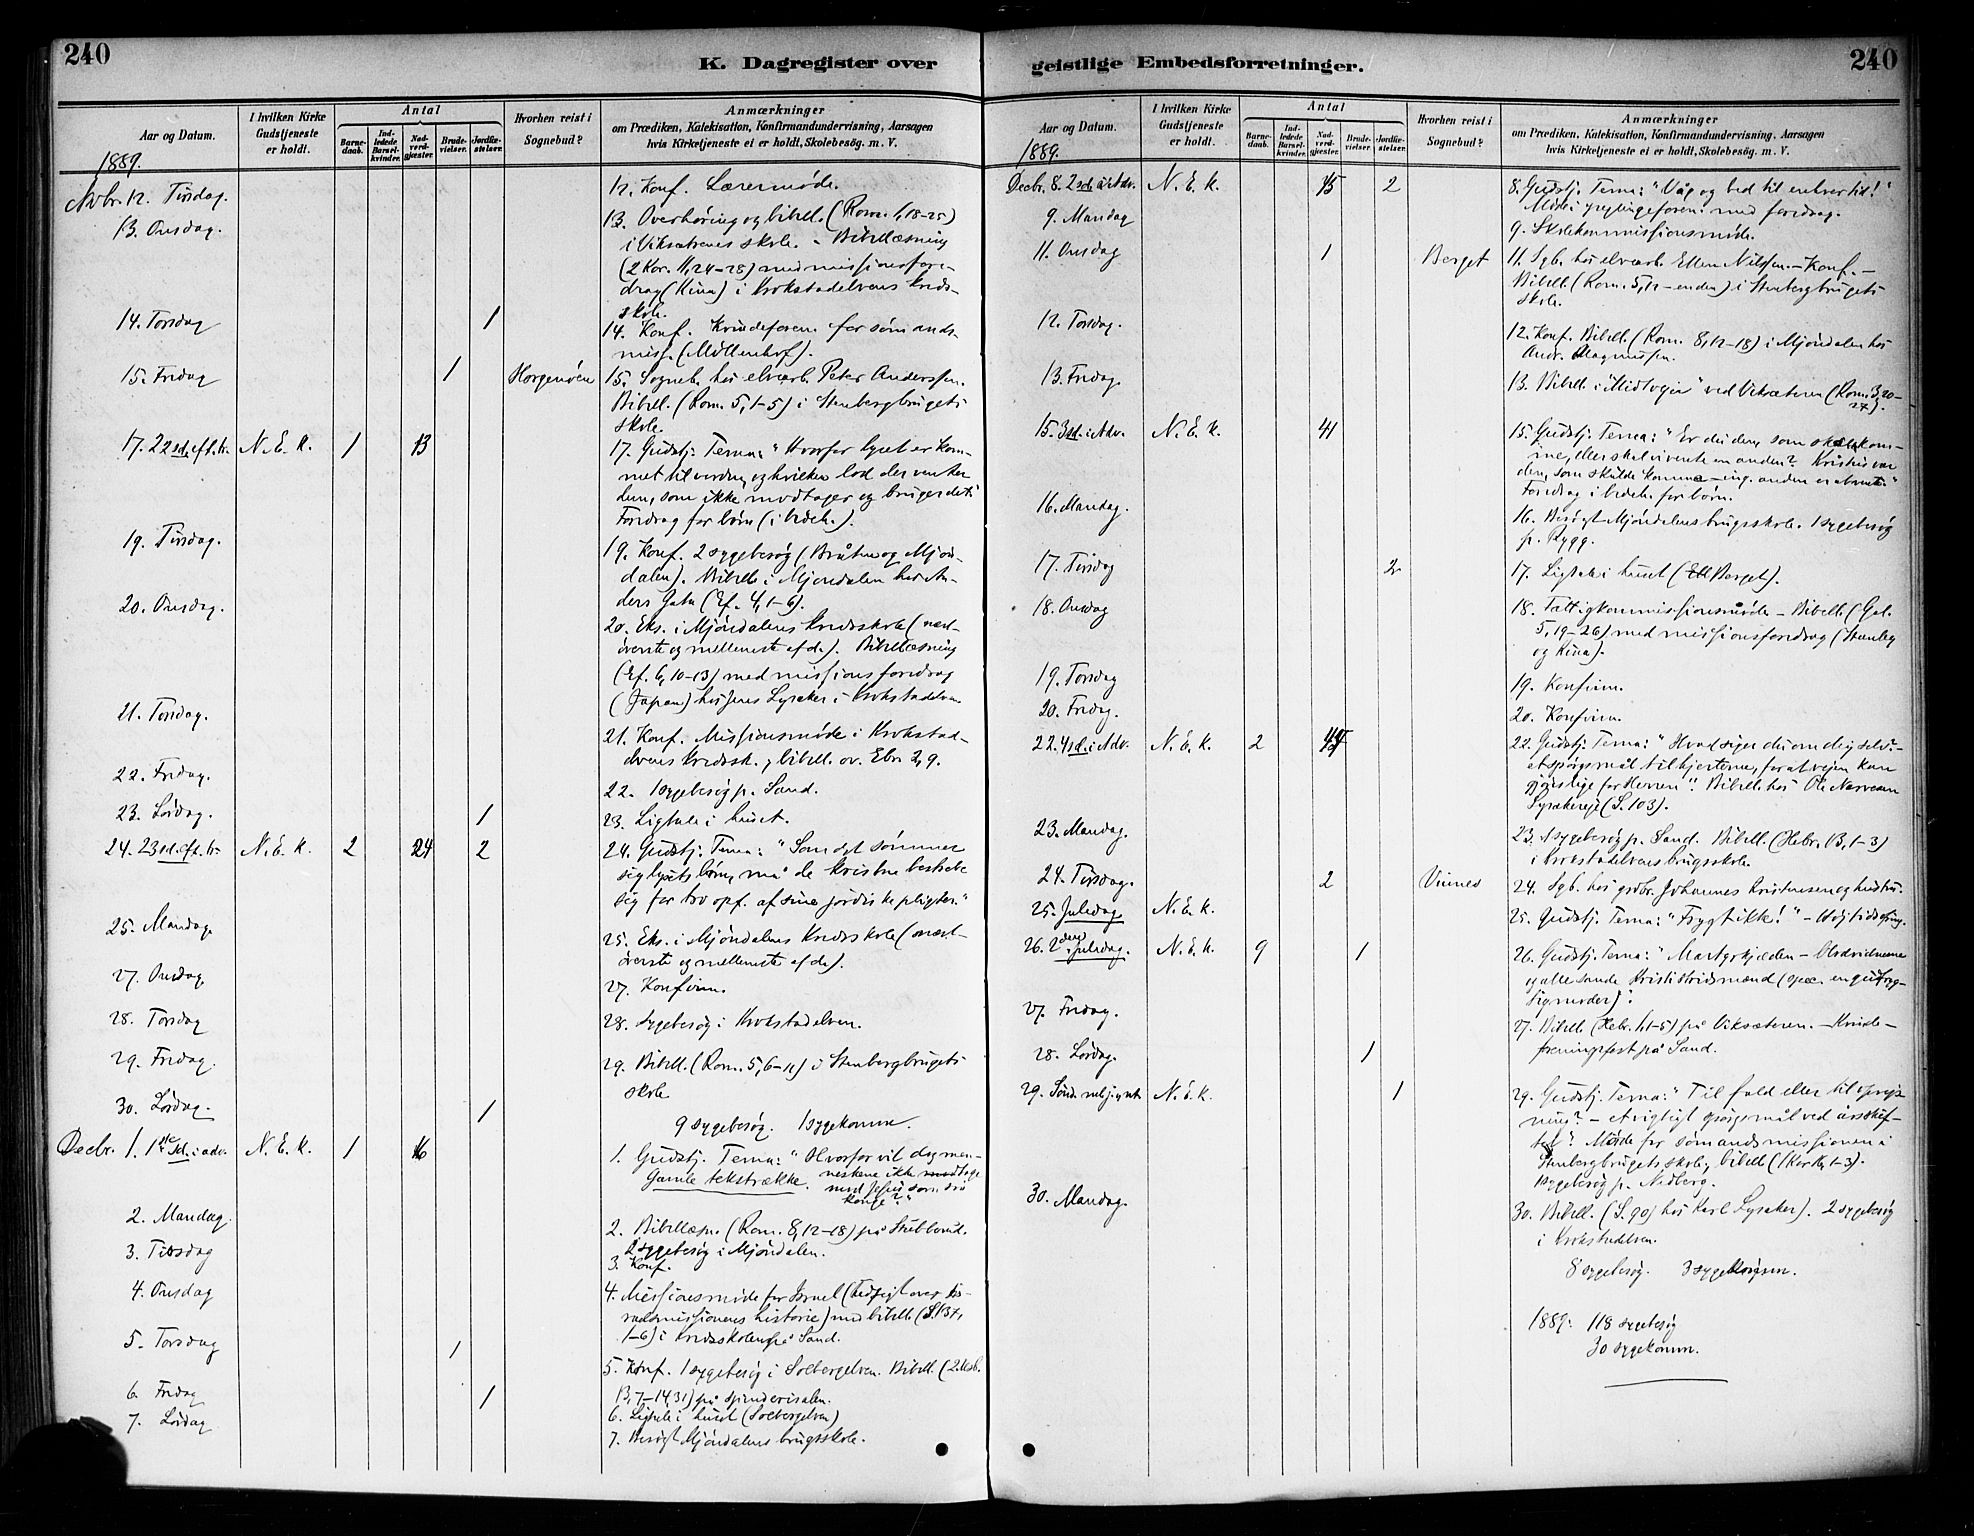 240
K. Dagregister over
Aar og Datum.
I hvilken Kirke Gudstjeneste er holdt.
Antal
Barne-daab.
Ind-ledede Barsel-kvinder.
Nad-verd-gjæster.
Brude-vielser.
Jordfæ-stelser.
Hvorhen reist i Sognebud?
Anmærkninger
om Prædiken, Katekisation, Konfirmandundervisning, Aarsagen
hvis Kirketjeneste ei er holdt, Skolebesøg. m. V.
1889.
Nvbr. 12. Tirsdag. 12. Konf. Lærermøde.
13. Onsdag. 13. Overhøring og bibell. (Rom. 1,18-25)
i Viksætrenes skole. - Bibellæsning
(2 Kor. 11,24-28) med missionsfore-
drag (Kina) i Krokstadelvens kreds-
skole.
14. Torsdag 1 14. Konf. Kvindeforen. for sømands-
miss. (Møllenhof).
15. Fredag 1 Horgenøen 15. Sogneb. hos elværb. Peter Anderssen.
Bibell. (Rom. 5,1-5) i Stenbergbrugets
skole.
17. 22 sd. eft. tr. N. E. K. 1 13 17. Gudstj. Tema: "Hvorfor lyset er kom-
met til verden, og hvilken lod der venter
dem, som ikke modtager og bruger det."
Foredrag for børn (i bedeh.).
19. Tirsdag. 19. Konf. 2 sygebesøg (Bråten og Mjøn-
dalen). Bibell. i Mjøndalen hos An-
ders Gata (Ef. 4,1-6).
20. Onsdag. 20. Eks. i Mjøndalens kredsskole (næst-
øverste og mellemste afd.). Bibellæsning
(Ef. 6,10-13) med missionsforedrag
(Japan) hos Jens Lysaker i Krokstadelven.
21. Torsdag. 21. Konf. Missionsmøde i Krokstad-
elvens kredssk., bibell. ov. Ebr. 2,9.
22. Fredag. 22. 1 sygebesøg p. Sand.
23. Lørdag. 1 23. Ligtale i huset.
24. 23 sd. eft. tr. N. E. K. 2 24 2 24. Gudstj. Tema: "Som det sømmer
sig lysets børn, må de kristne bestræbe
sig for tro opf. af sine jordiske pligter."
25. Mandag. 25. Eks. i Mjøndalens Kredsskole (næst-
øverste og mellemste afd.).
27. Onsdag. 27. Konfirm.
28. Torsdag 28. sygebesøg i Krokstadelven.
29. Fredag. 29. Bibell. (Rom. 5,6-11) i Stenbergbrugets
skole
30. Lørdag. 1
9 sygebesøg. 1 sygekomm.
Decbr. 1. 1ste sd. i adv. N. E. K. 1 16 1. Gudstj. Tema: "Hvorfor vil dog men-
Gamle tekstrække. neskene ikke modtage
med Jesus som sin
konge?"
2. Mandag. 2. Bibellæsn. (Rom. 8,12-18) på Stubberud.
2 sygebesøg i Mjøndalen.
3. Tirsdag 3. Konf.
4. Onsdag 4. Missionsmøde for Israel (Udsigt over Is-
raelsmissionens historie) med bibell. (S. 137,
1-6) i kredsskolen på Sand.
5. Torsdag 1 5. Konf. 1 sygebesøg i Solbergelven. Bibell. (2 Mosb.
13,7-14,31) på spinderisalen.
6. Fredag 1 6. Ligtale i huset (Solbergelven)
7. Lørdag 7. Besøgt Mjøndalens brugsskole.
geistlige Embedsforretninger.
240
Aar og Datum.
I hvilken Kirke Gudstjeneste er holdt.
Antal
Barne-daab.
Ind-ledede Barsel-kvinder.
Nad-verd-gjæster.
Brude-vielser.
Jordfæ-stelser.
Hvorhen reist i Sognebud?
Anmærkninger
om Prædiken, Katekisation, Konfirmandundervisning, Aarsagen
hvis Kirketjeneste ei er holdt, Skolebesøg. m. V.
1889.
Decbr. 8. 2 sd. i Adv. N. E. K. 15 2 8. Gudstj. Tema: "Våg og bed til enhver tid!"
Møde i ynglingeforen. med foredrag.
9. Mandag 9. Skolekommissionsmøde.
11. Onsdag 1 Berget 11. Sgb. hos elværb. Ellen Nilssen. - Konf. -
Bibell. (Rom. 5,12-enden) i Stenbergbrugets
skole.
12. Torsdag. 12. Konf. Bibell. (Rom. 8,12-18) i Mjøndalen hos
Andr. Magnussen.
13. Fredag. 13. Bibell. i "Midtbygn" ved Viksæteren (Rom. 3,20-
27).
15. 3 sd. i Adv. N. E. K. 41 15. Gudstj. Tema: "Er du den, som skal kom-
me, eller skal vi vente en anden? Kristus var
den, som skulde komme - ing. anden er at vente."
Foredrag i bedeh. for børn.
16. Mandag. 16. Besøgt Mjøndalens brugsskole. 1 sygebesøg
p. Rygg.
17. Tirsdag 2 17. Ligtale i huset (Berget).
18. Onsdag 18. Fattigkommissionsmøde - Bibell. (Gal.
5,19-26) med missionsforedrag (Stanley
og Kina).
19. Torsdag 19. Konfirm.
20. Fredag. 20. Konfirm.
22. 4 sd. i Adv. N. E. K. 2 22. Gudstj. Tema: "Hvad siger du om dig selv? -
et spørgsmål til hjerterne, for at vejen kan
gjøres lige for Herren". Bibell. hos Ole Narvesen
Lysakereje (S. 103).
23. Mandag. 23. 1 sygebesøg p. Sand. Bibell. (Hebr. 13,1-3)
i Krokstadelvens brugsskole.
24. Tirsdag. 2 Vinnes 24. Sgb. hos grdbr. Johannes Kristensen og hustru.
25. Juledag. N. E. K. 25. Gudstj. Tema: "Frygt ikke!" - Højtidsofring.
26. 2den juledag. N. E. K. 9 1 26. Gudstj. Tema: "Martyrkjæden - Blodvidnerne
og alle sande Kristi stridsmænd
27. Fredag. 27. Bibell. (Hebr. 1,1-5) på Viksæteren. - Kvinde-
foreningsfest på Sand.
28. Lørdag. 1
29. Sønd. ml. j. og nt. N. E. K. 1 29. Gudstj. Tema: "Til fald eller til oprejs-
ning? - et vigtigt spørgsmål ved årsskif-
tet." Møde for sømandsmissionen i
Stenbergbrugets skole, bibell. (1 Kor. 16,1-3).
sygebesøg p. Nedberg.
30. Mandag. 30. Bibell. (S. 90) hos Karl Lysaker). 2 sygebesøg
i Krokstadelven.
8 sygebesøg. 3 sygekomm.
1889: 118 sygebesøg
30 sygekomm.